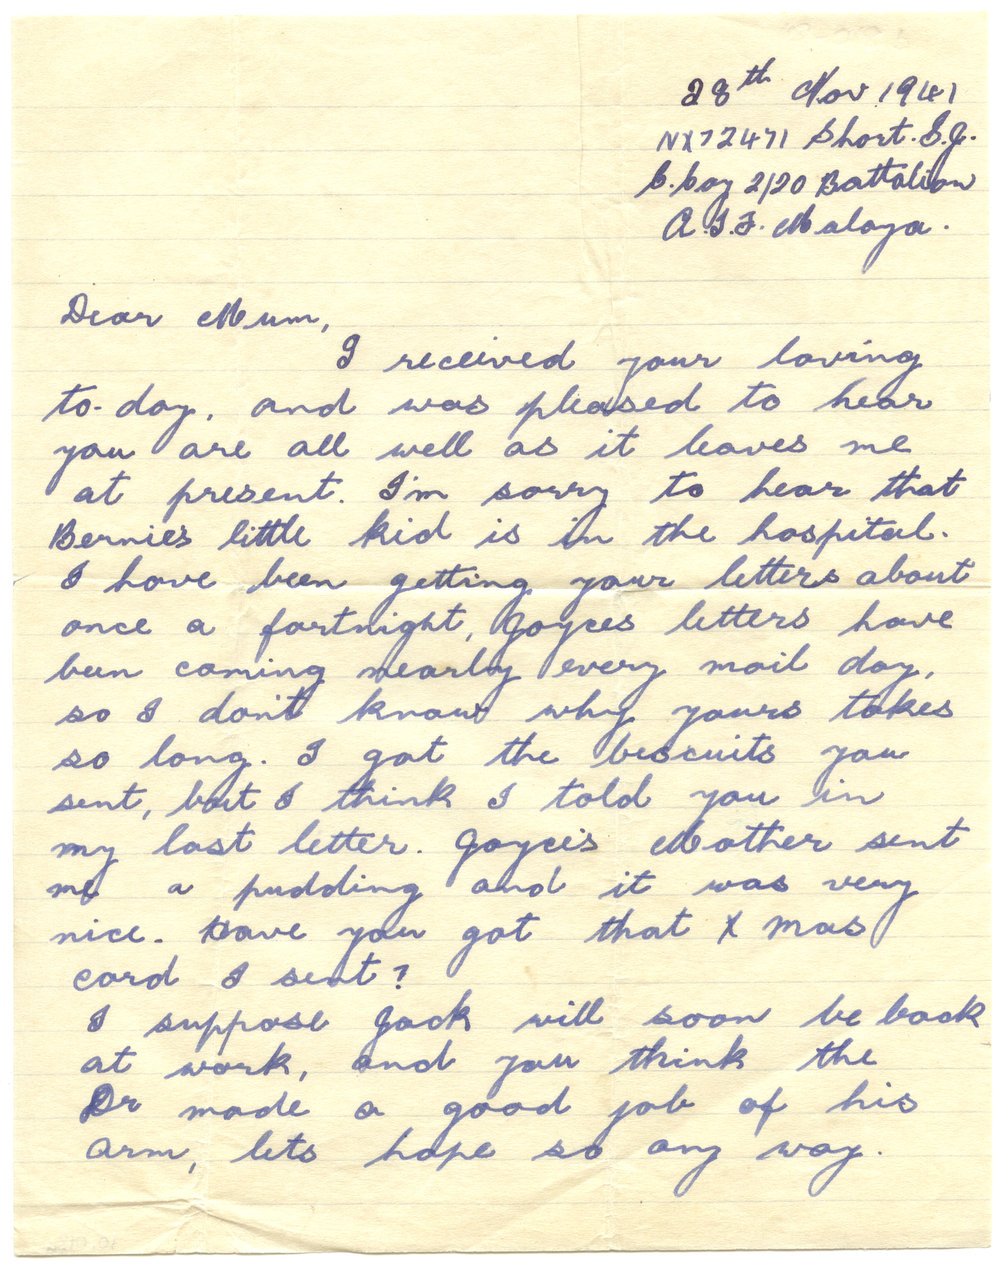 28th Nov 1941
NX72471 Short. S.J.
C. Coy 2/20 Battalion
A.I.F. Malaya.
Dear Mum,
I received your loving
to-day, and was pleased to hear
you are all well as it leaves me
at present. I'm sorry to hear that
Bernie's little kid is in the hospital.
I have been getting your letters about
once a fortnight, Joyces letters have
been coming nearly every mail day,
so I don't know why yours takes
so long. I got the biscuits you
sent, but I think I told you in
my last letter. Joyce's Mother sent
me a pudding and it was very
nice. Have you got that X mas
card I sent?
I suppose Jack will soon be back
at work, and you think the
Dr made a good job of his
arm, lets hope so any way.